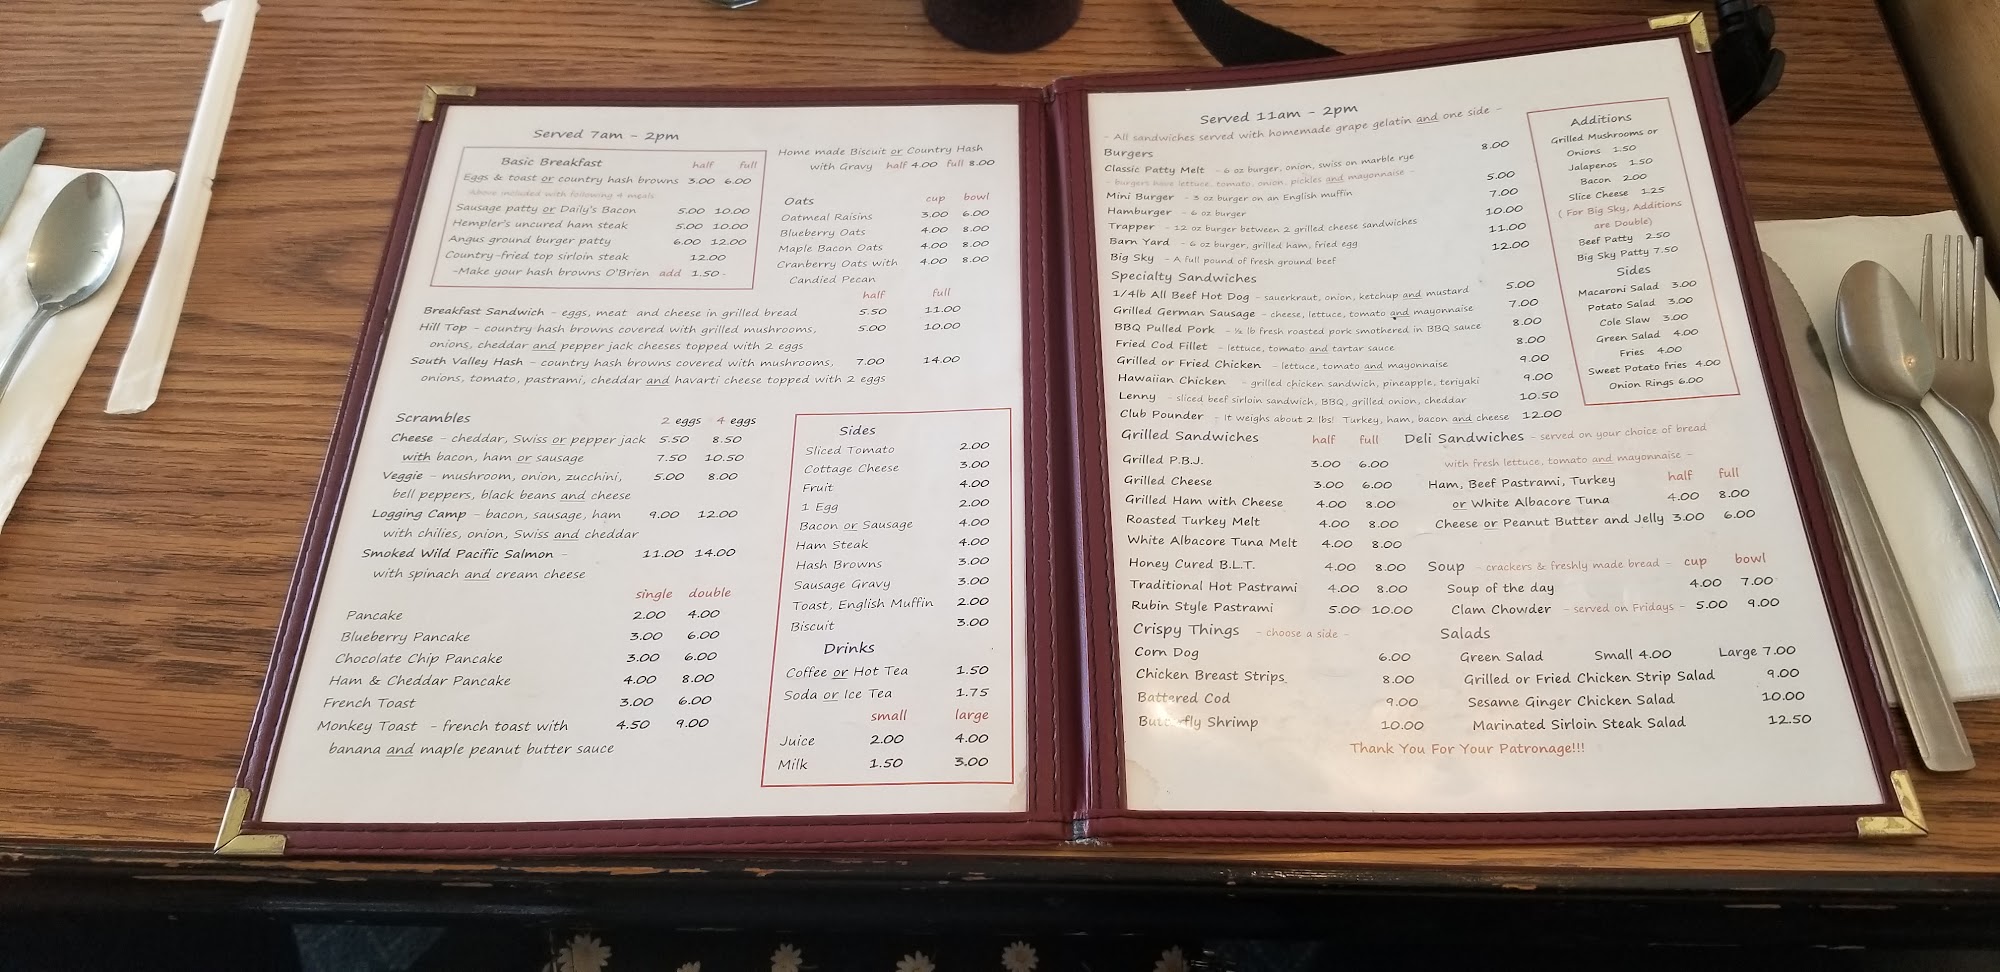 Served 7am - 2pm
Basic Breakfast half full
Eggs & toast or country hash browns 3.00 6.00
Above included with following 4 meals
Sausage patty or Daily's Bacon 5.00 10.00
Hempler's uncured ham steak 5.00 10.00
Angus ground burger patty 6.00 12.00
Country-fried top sirloin steak 12.00
-Make your hash browns O'Brien add 1.50-
Home made Biscuit or Country Hash
with Gravy half 4.00 full 8.00
Oats cup bowl
Oatmeal Raisins 3.00 6.00
Blueberry Oats 4.00 8.00
Maple Bacon Oats 4.00 8.00
Cranberry Oats with 4.00 8.00
Candied Pecan
half full
Breakfast Sandwich - eggs, meat and cheese in grilled bread 5.50 11.00
Hill Top - country hash browns covered with grilled mushrooms, 5.00 10.00
onions, cheddar and pepper jack cheeses topped with 2 eggs
South Valley Hash - country hash browns covered with mushrooms, 7.00 14.00
onions, tomato, pastrami, cheddar and havarti cheese topped with 2 eggs
Scrambles 2 eggs 4 eggs
Cheese - cheddar, Swiss or pepper jack 5.50 8.50
with bacon, ham or sausage 7.50 10.50
Veggie - mushroom, onion, zucchini, 5.00 8.00
bell peppers, black beans and cheese
Logging Camp - bacon, sausage, ham 9.00 12.00
with chilies, onion, Swiss and cheddar
Smoked Wild Pacific Salmon - 11.00 14.00
with spinach and cream cheese
single double
Pancake 2.00 4.00
Blueberry Pancake 3.00 6.00
Chocolate Chip Pancake 3.00 6.00
Ham & Cheddar Pancake 4.00 8.00
French Toast 3.00 6.00
Monkey Toast - french toast with 4.50 9.00
banana and maple peanut butter sauce
Sides
Sliced Tomato 2.00
Cottage Cheese 3.00
Fruit 4.00
1 Egg 2.00
Bacon or Sausage 4.00
Ham Steak 4.00
Hash Browns 3.00
Sausage Gravy 3.00
Toast, English Muffin 2.00
Biscuit 3.00
Drinks
Coffee or Hot Tea 1.50
Soda or Ice Tea 1.75
small large
Juice 2.00 4.00
Milk 1.50 3.00
Served 11am - 2pm
- All sandwiches served with homemade grape gelatin and one side -
Burgers
Classic Patty Melt - 6 oz burger, onion, swiss on marble rye 8.00
- burgers have lettuce, tomato, onion, pickles and mayonnaise -
Mini Burger - 3 oz burger on an English muffin 5.00
Hamburger - 6 oz burger 7.00
Trapper - 12 oz burger between 2 grilled cheese sandwiches 10.00
Barn Yard - 6 oz burger, grilled ham, fried egg 11.00
Big Sky - A full pound of fresh ground beef 12.00
Specialty Sandwiches
1/4lb All Beef Hot Dog - sauerkraut, onion, ketchup and mustard 5.00
Grilled German Sausage - cheese, lettuce, tomato and mayonnaise 7.00
BBQ Pulled Pork - ½ lb fresh roasted pork smothered in BBQ sauce 8.00
Fried Cod Fillet - lettuce, tomato and tartar sauce 8.00
Grilled or Fried Chicken - lettuce, tomato and mayonnaise 9.00
Hawaiian Chicken - grilled chicken sandwich, pineapple, teriyaki 9.00
Lenny - sliced beef sirloin sandwich, BBQ, grilled onion, cheddar 10.50
Club Pounder - It weighs about 2 lbs! Turkey, ham, bacon and cheese 12.00
Additions
Grilled Mushrooms or
Onions 1.50
Jalapenos 1.50
Bacon 2.00
Slice Cheese 1.25
( For Big Sky, Additions
are Double)
Beef Patty 2.50
Big Sky Patty 7.50
Sides
Macaroni Salad 3.00
Potato Salad 3.00
Cole Slaw 3.00
Green Salad 4.00
Fries 4.00
Sweet Potato fries 4.00
Onion Rings 6.00
Grilled Sandwiches half full
Grilled P.B.J. 3.00 6.00
Grilled Cheese 3.00 6.00
Grilled Ham with Cheese 4.00 8.00
Roasted Turkey Melt 4.00 8.00
White Albacore Tuna Melt 4.00 8.00
Honey Cured B.L.T. 4.00 8.00
Traditional Hot Pastrami 4.00 8.00
Rubin Style Pastrami 5.00 10.00
Deli Sandwiches - served on your choice of bread
with fresh lettuce, tomato and mayonnaise -
half full
Ham, Beef Pastrami, Turkey
or White Albacore Tuna 4.00 8.00
Cheese or Peanut Butter and Jelly 3.00 6.00
Soup - crackers & freshly made bread - cup bowl
Soup of the day 4.00 7.00
Clam Chowder - served on Fridays - 5.00 9.00
Crispy Things - choose a side -
Corn Dog 6.00
Chicken Breast Strips 8.00
Battered Cod 9.00
Butterfly Shrimp 10.00
Salads
Green Salad Small 4.00 Large 7.00
Grilled or Fried Chicken Strip Salad 9.00
Sesame Ginger Chicken Salad 10.00
Marinated Sirloin Steak Salad 12.50
Thank You For Your Patronage!!!